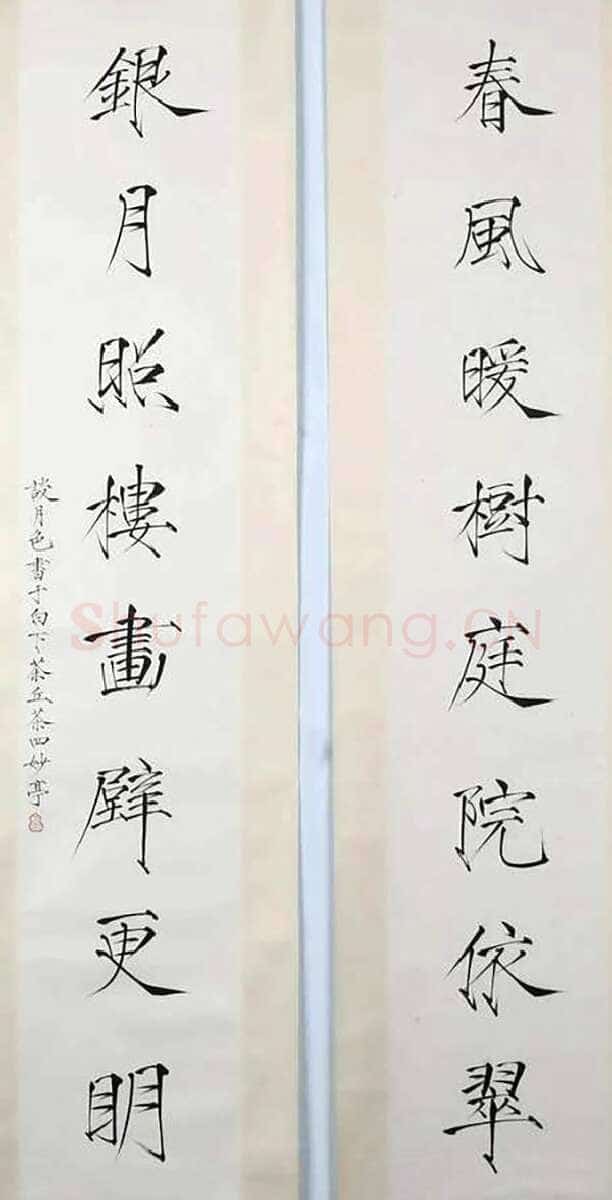 春風暖樹庭院依翠
銀月照樓畫壁更明
談月色書于白下茶丘茶四妙亭
Shufawang.CN